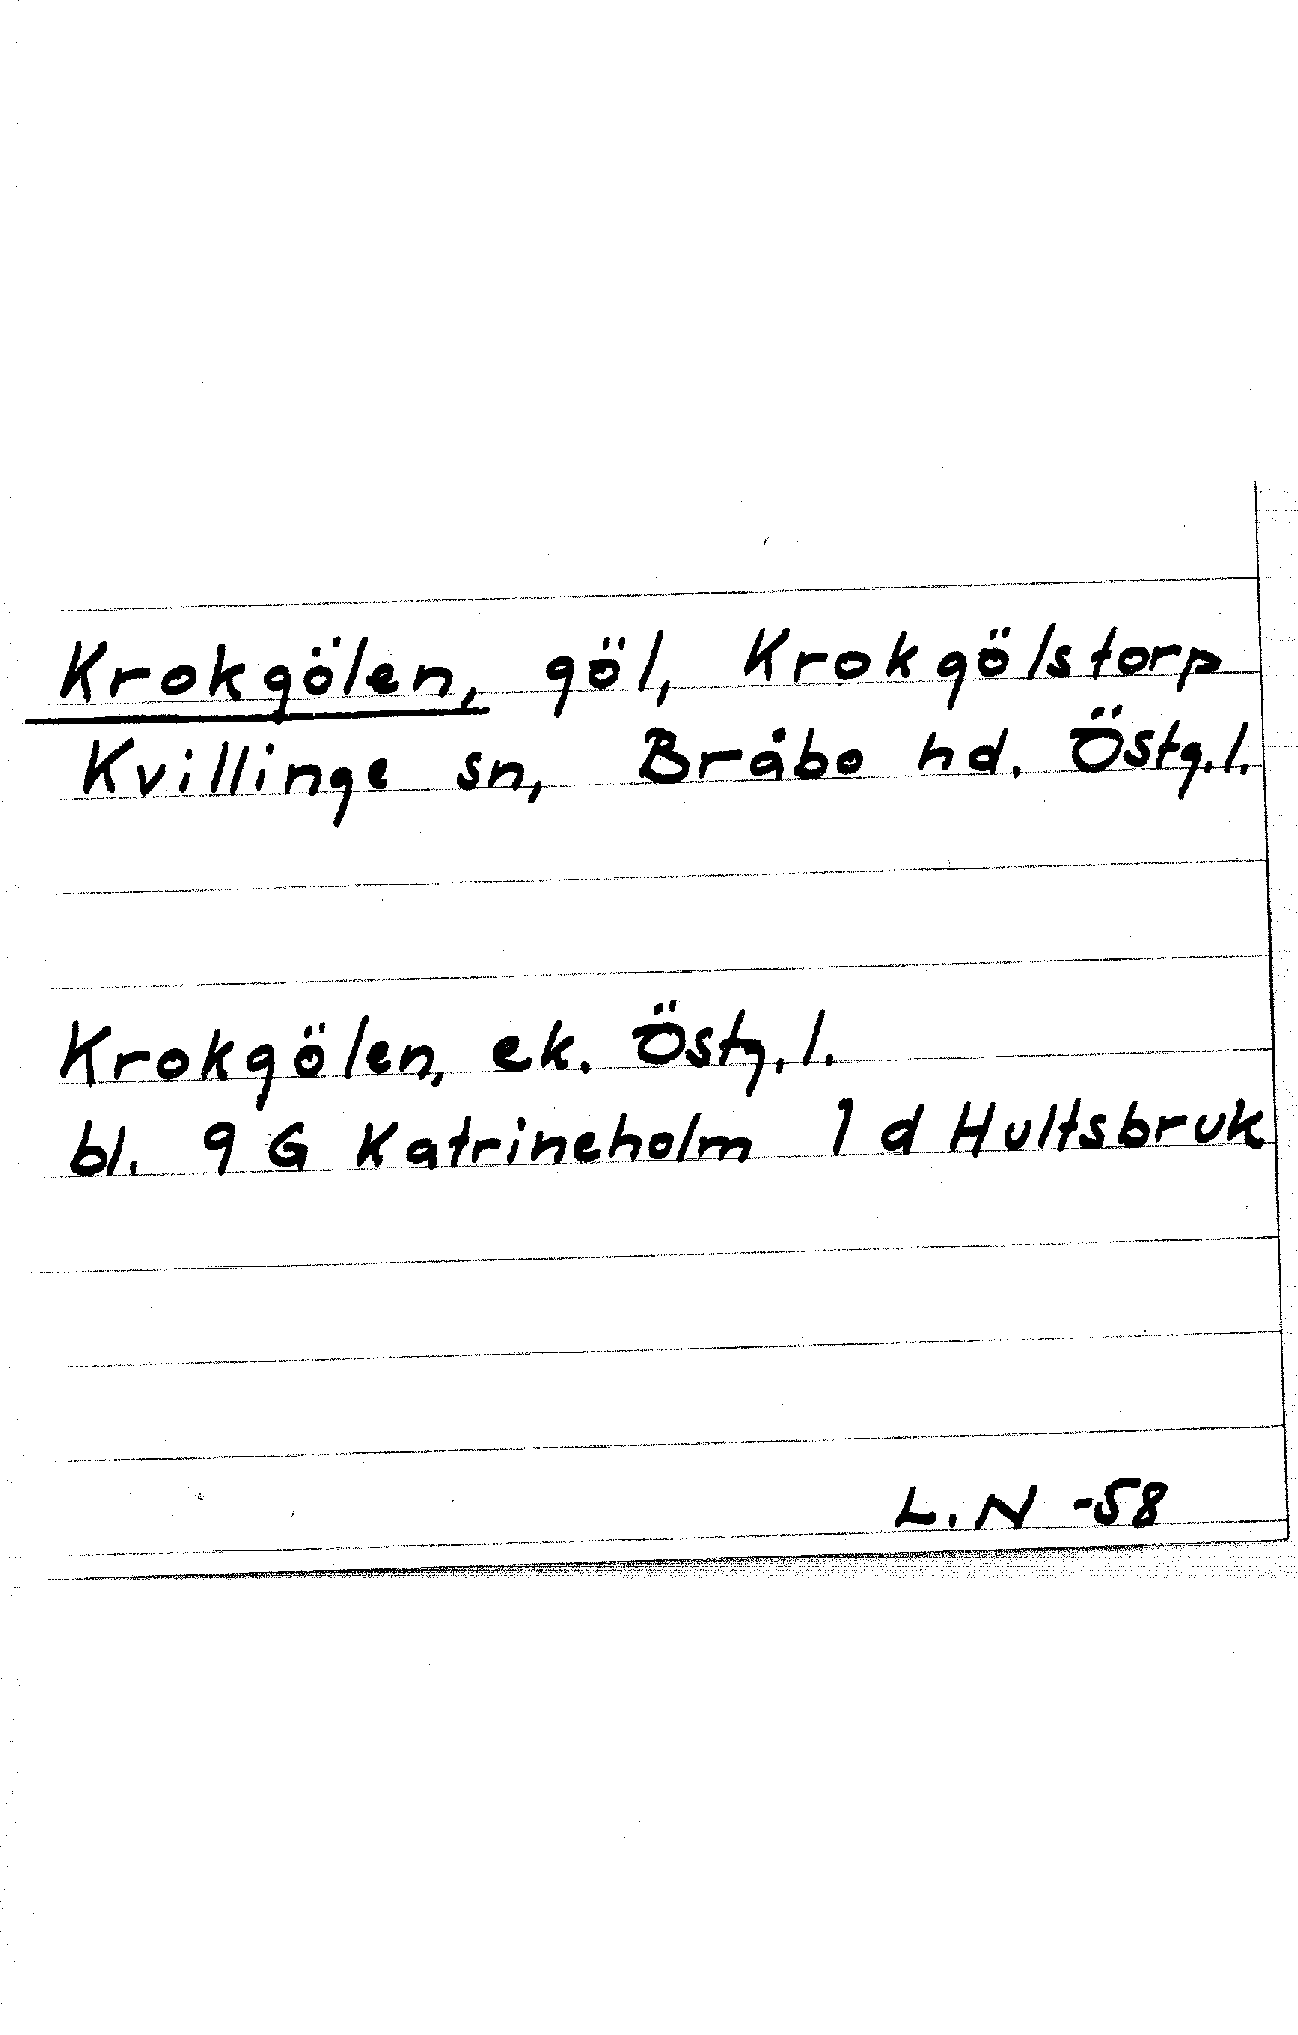 Krokgölen, göl, Krokgölstorp
Kvillinge sn, Bråbo hd. Östg.l.
Krokgölen, ek. Östg.l.
bl. 9 G Katrineholm 1 d Hultsbruk
L.N -58